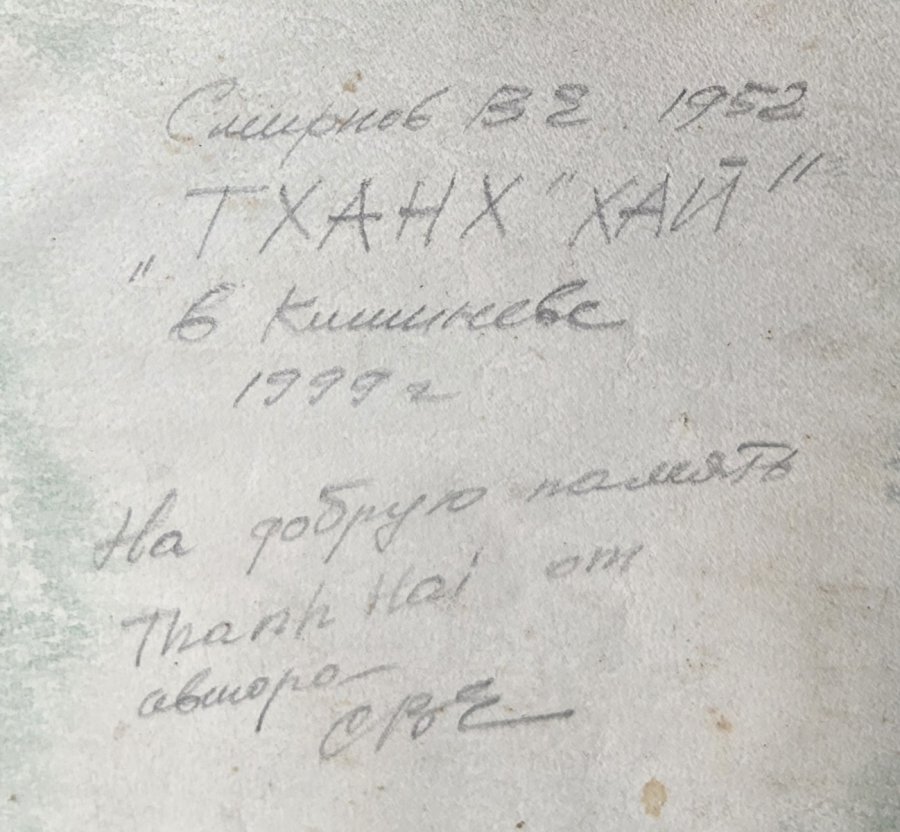 Смирнов В Е 1952
„ТХАНХ "ХАЙ"
в Кишиневе
1999 г
На добрую память
Thanh Hai от
автора
СВЕ